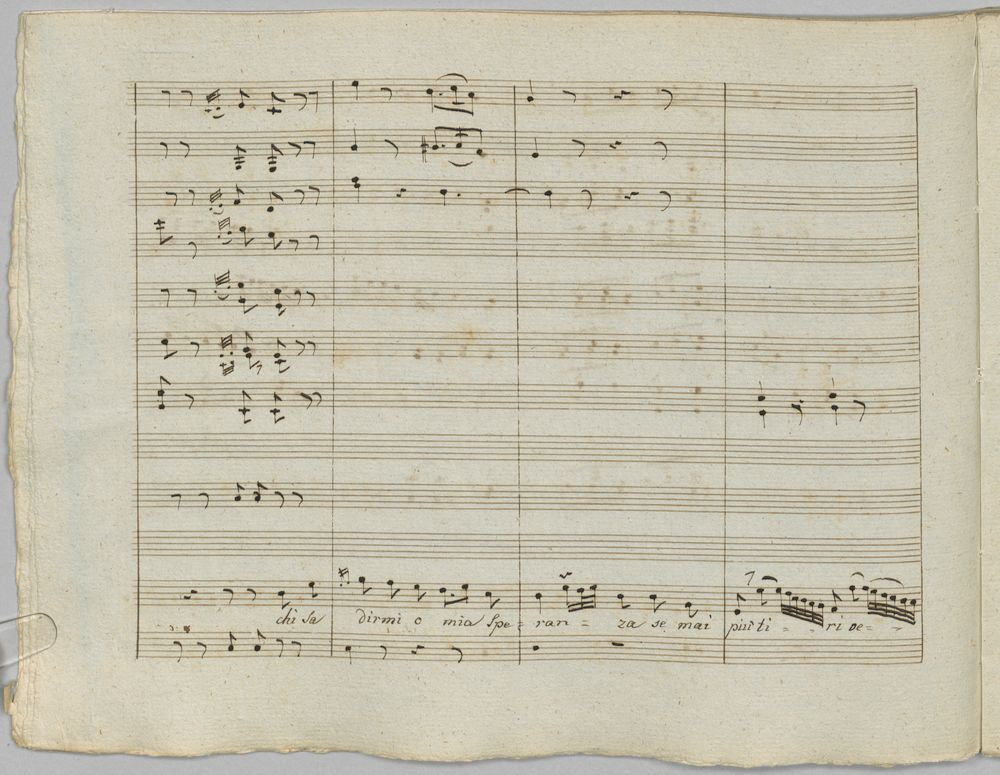 chi sa dirmi o mia spe = ran = za se mai piu ti - - ri ve = -